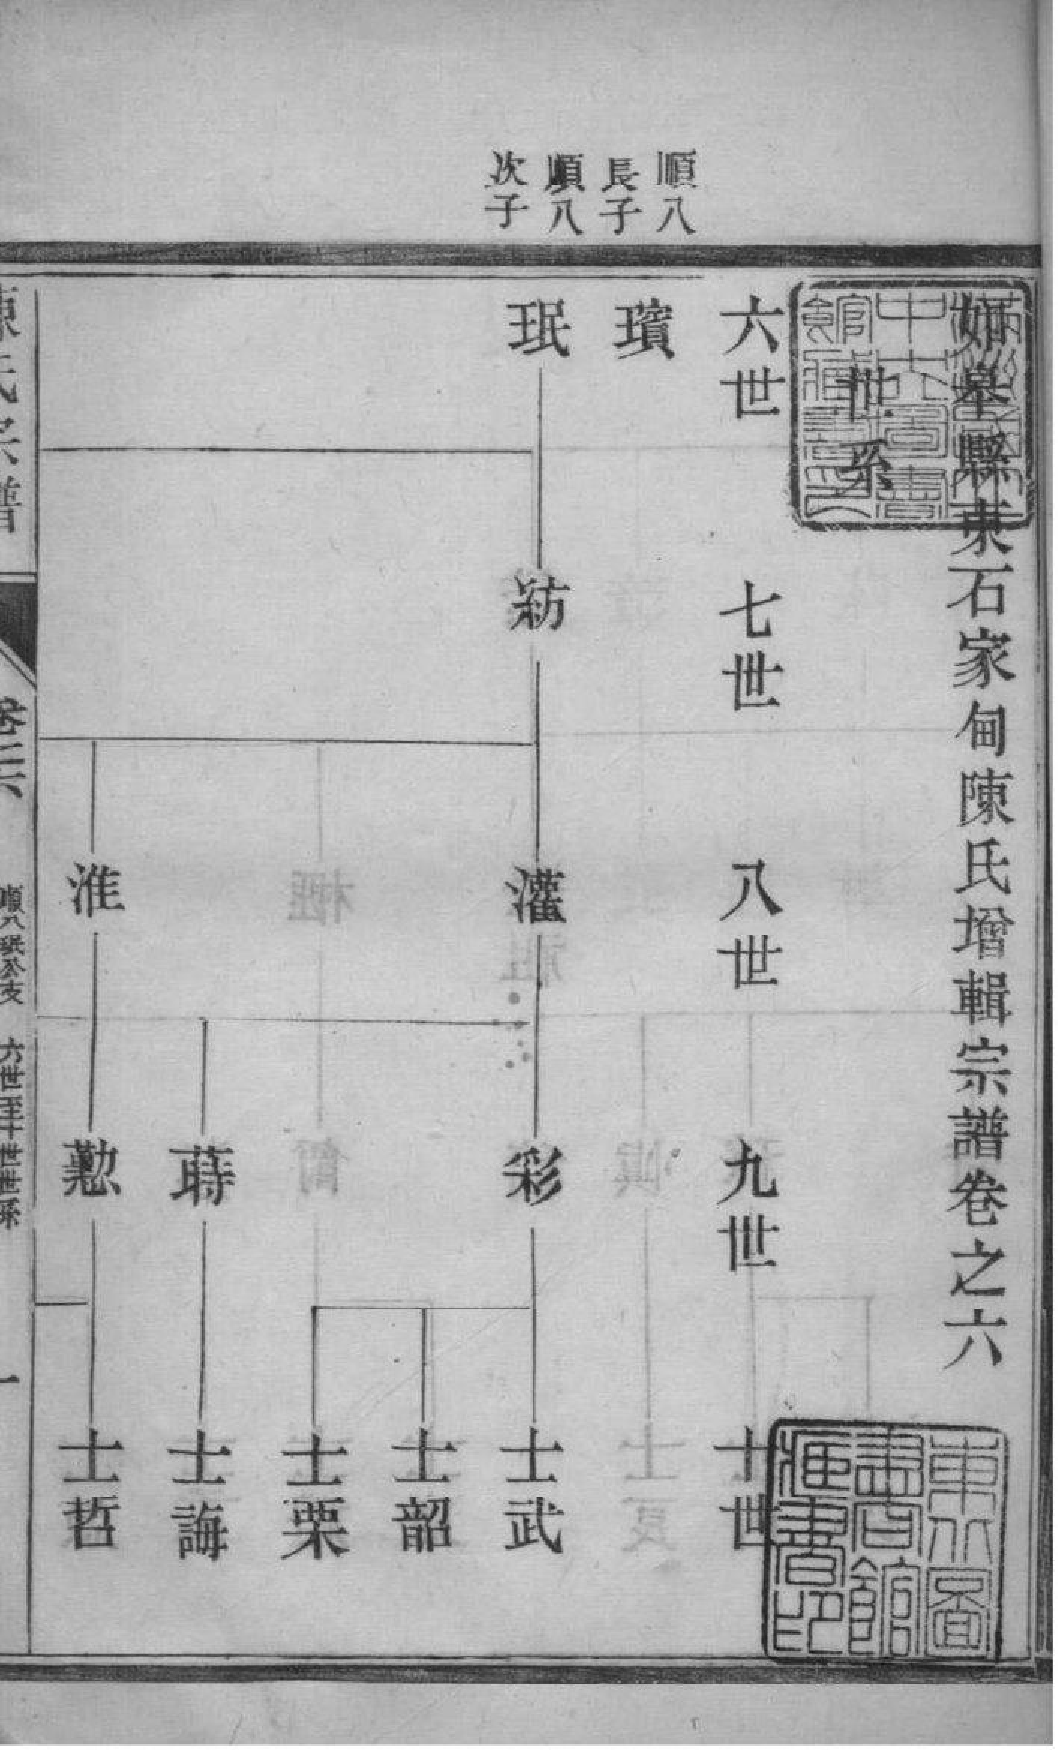 如皋縣東石家甸陳氏增輯宗譜卷之六
世系
六世
七世
八世
九世
十世
順八
長子
順八
次子
璸
珉
灌
彩
士武
士韶
士栗
蒔
士誨
淮
懃
士哲
陳氏宗譜
卷之六
順八珉公支
六世至十世世系
一